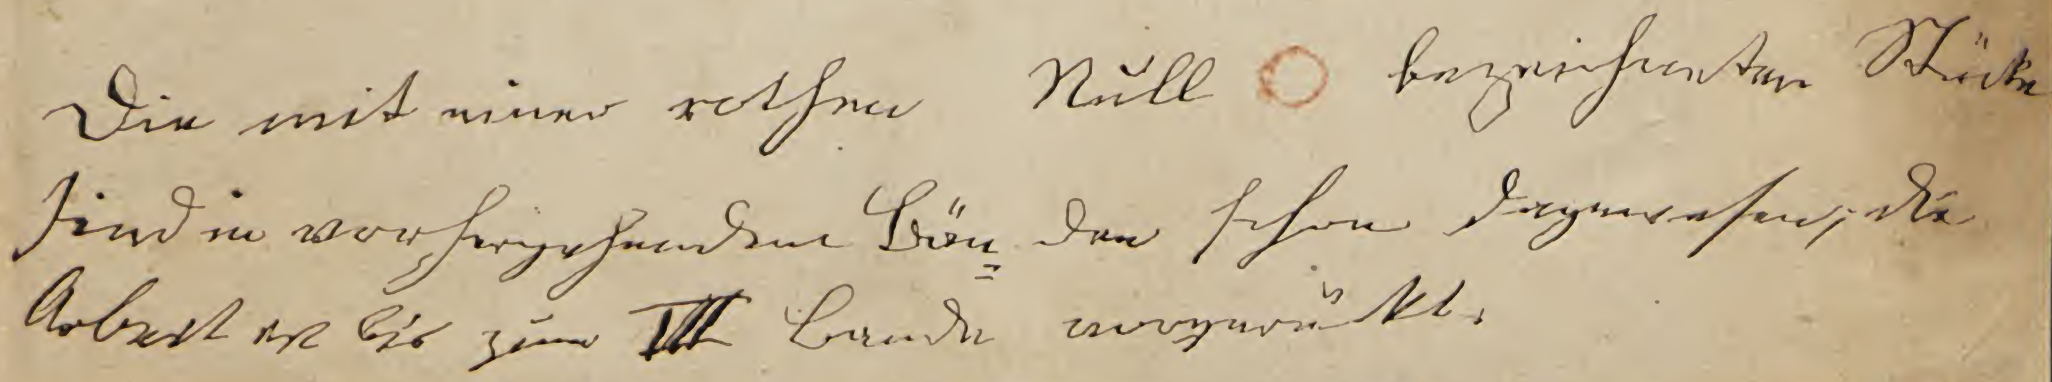 Die mit einer rothen Null O bezeichneten Stücke
sind in vorhergehenden Bän= den schon dagewesen, die
Arbeit ist bis zum VII Bande vorgerückt.